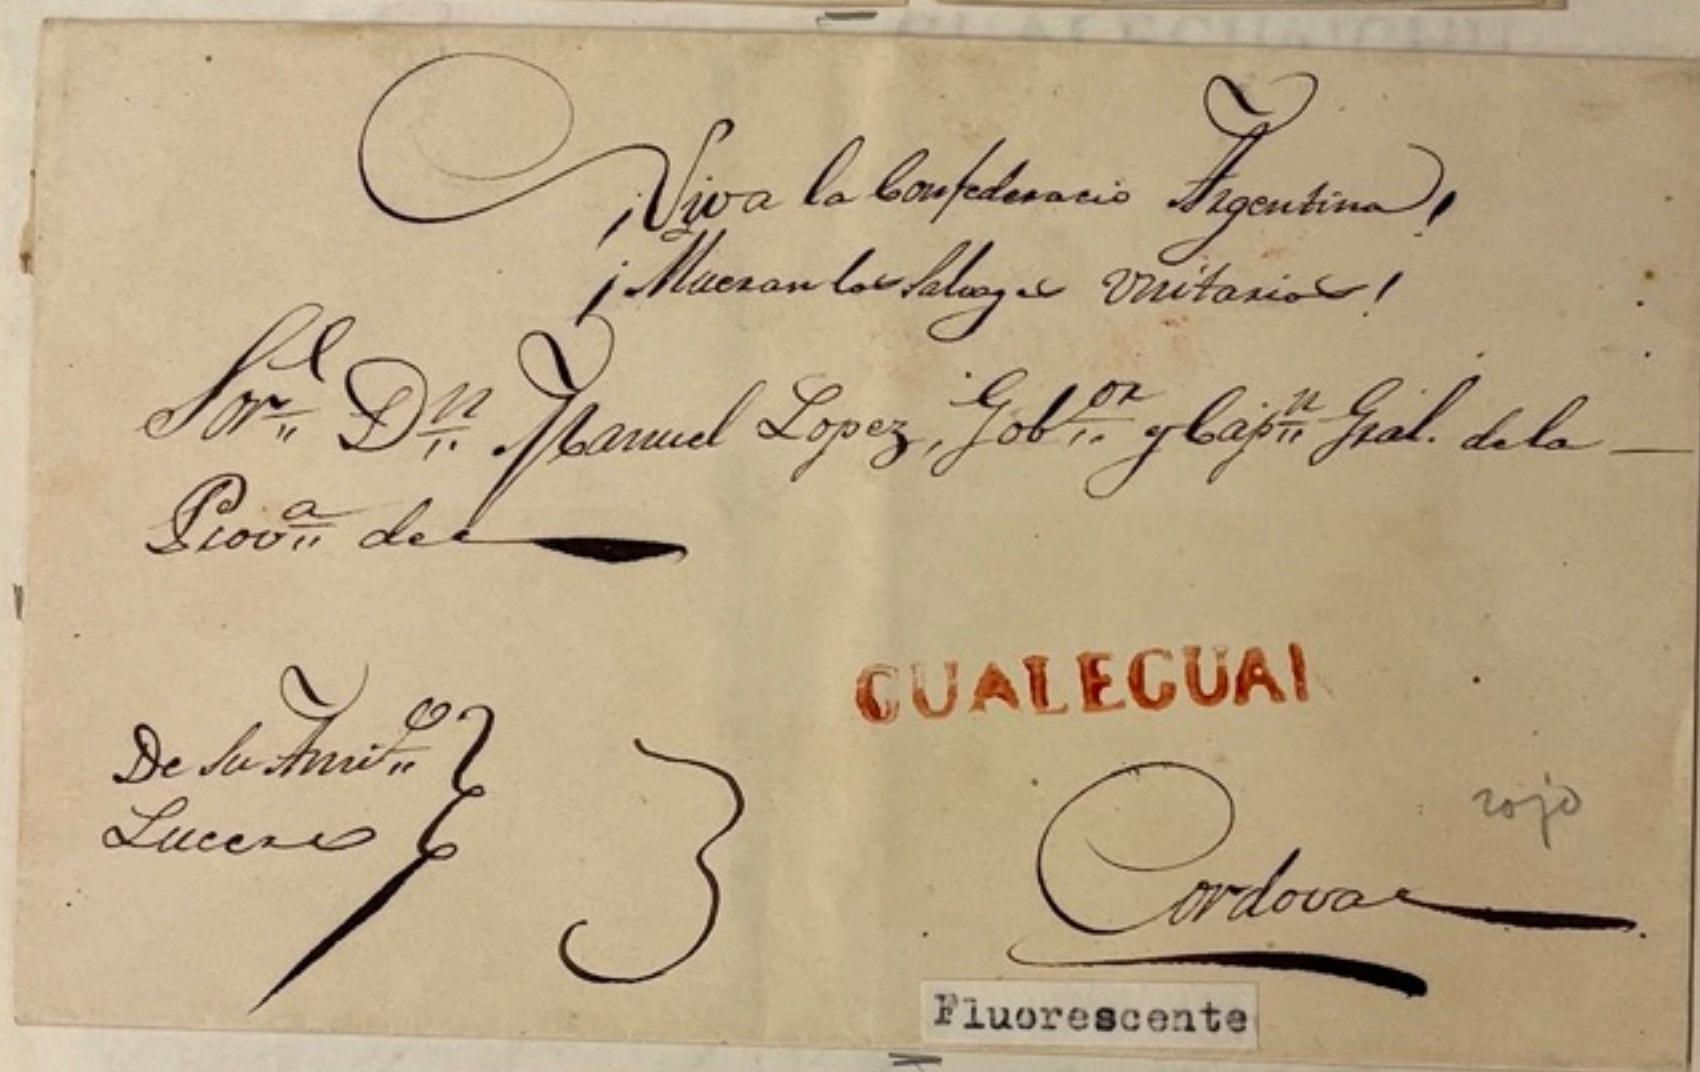 ¡Viva la Confederacio Argentina!
¡Mueran los Salvages Unitarios!
Sor. Dn. Manuel Lopez, Gobor. y Capn. Gral. de la
Prova. de
GUALEGUAI
De su Amigo
Lucero
3
rojo
Cordova
Fluorescente